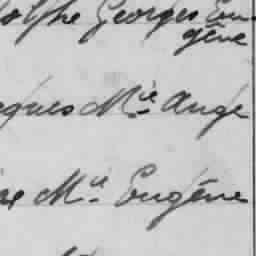 olphe Georges Eu-
gène
cques Mie Ange
Mie Eugène